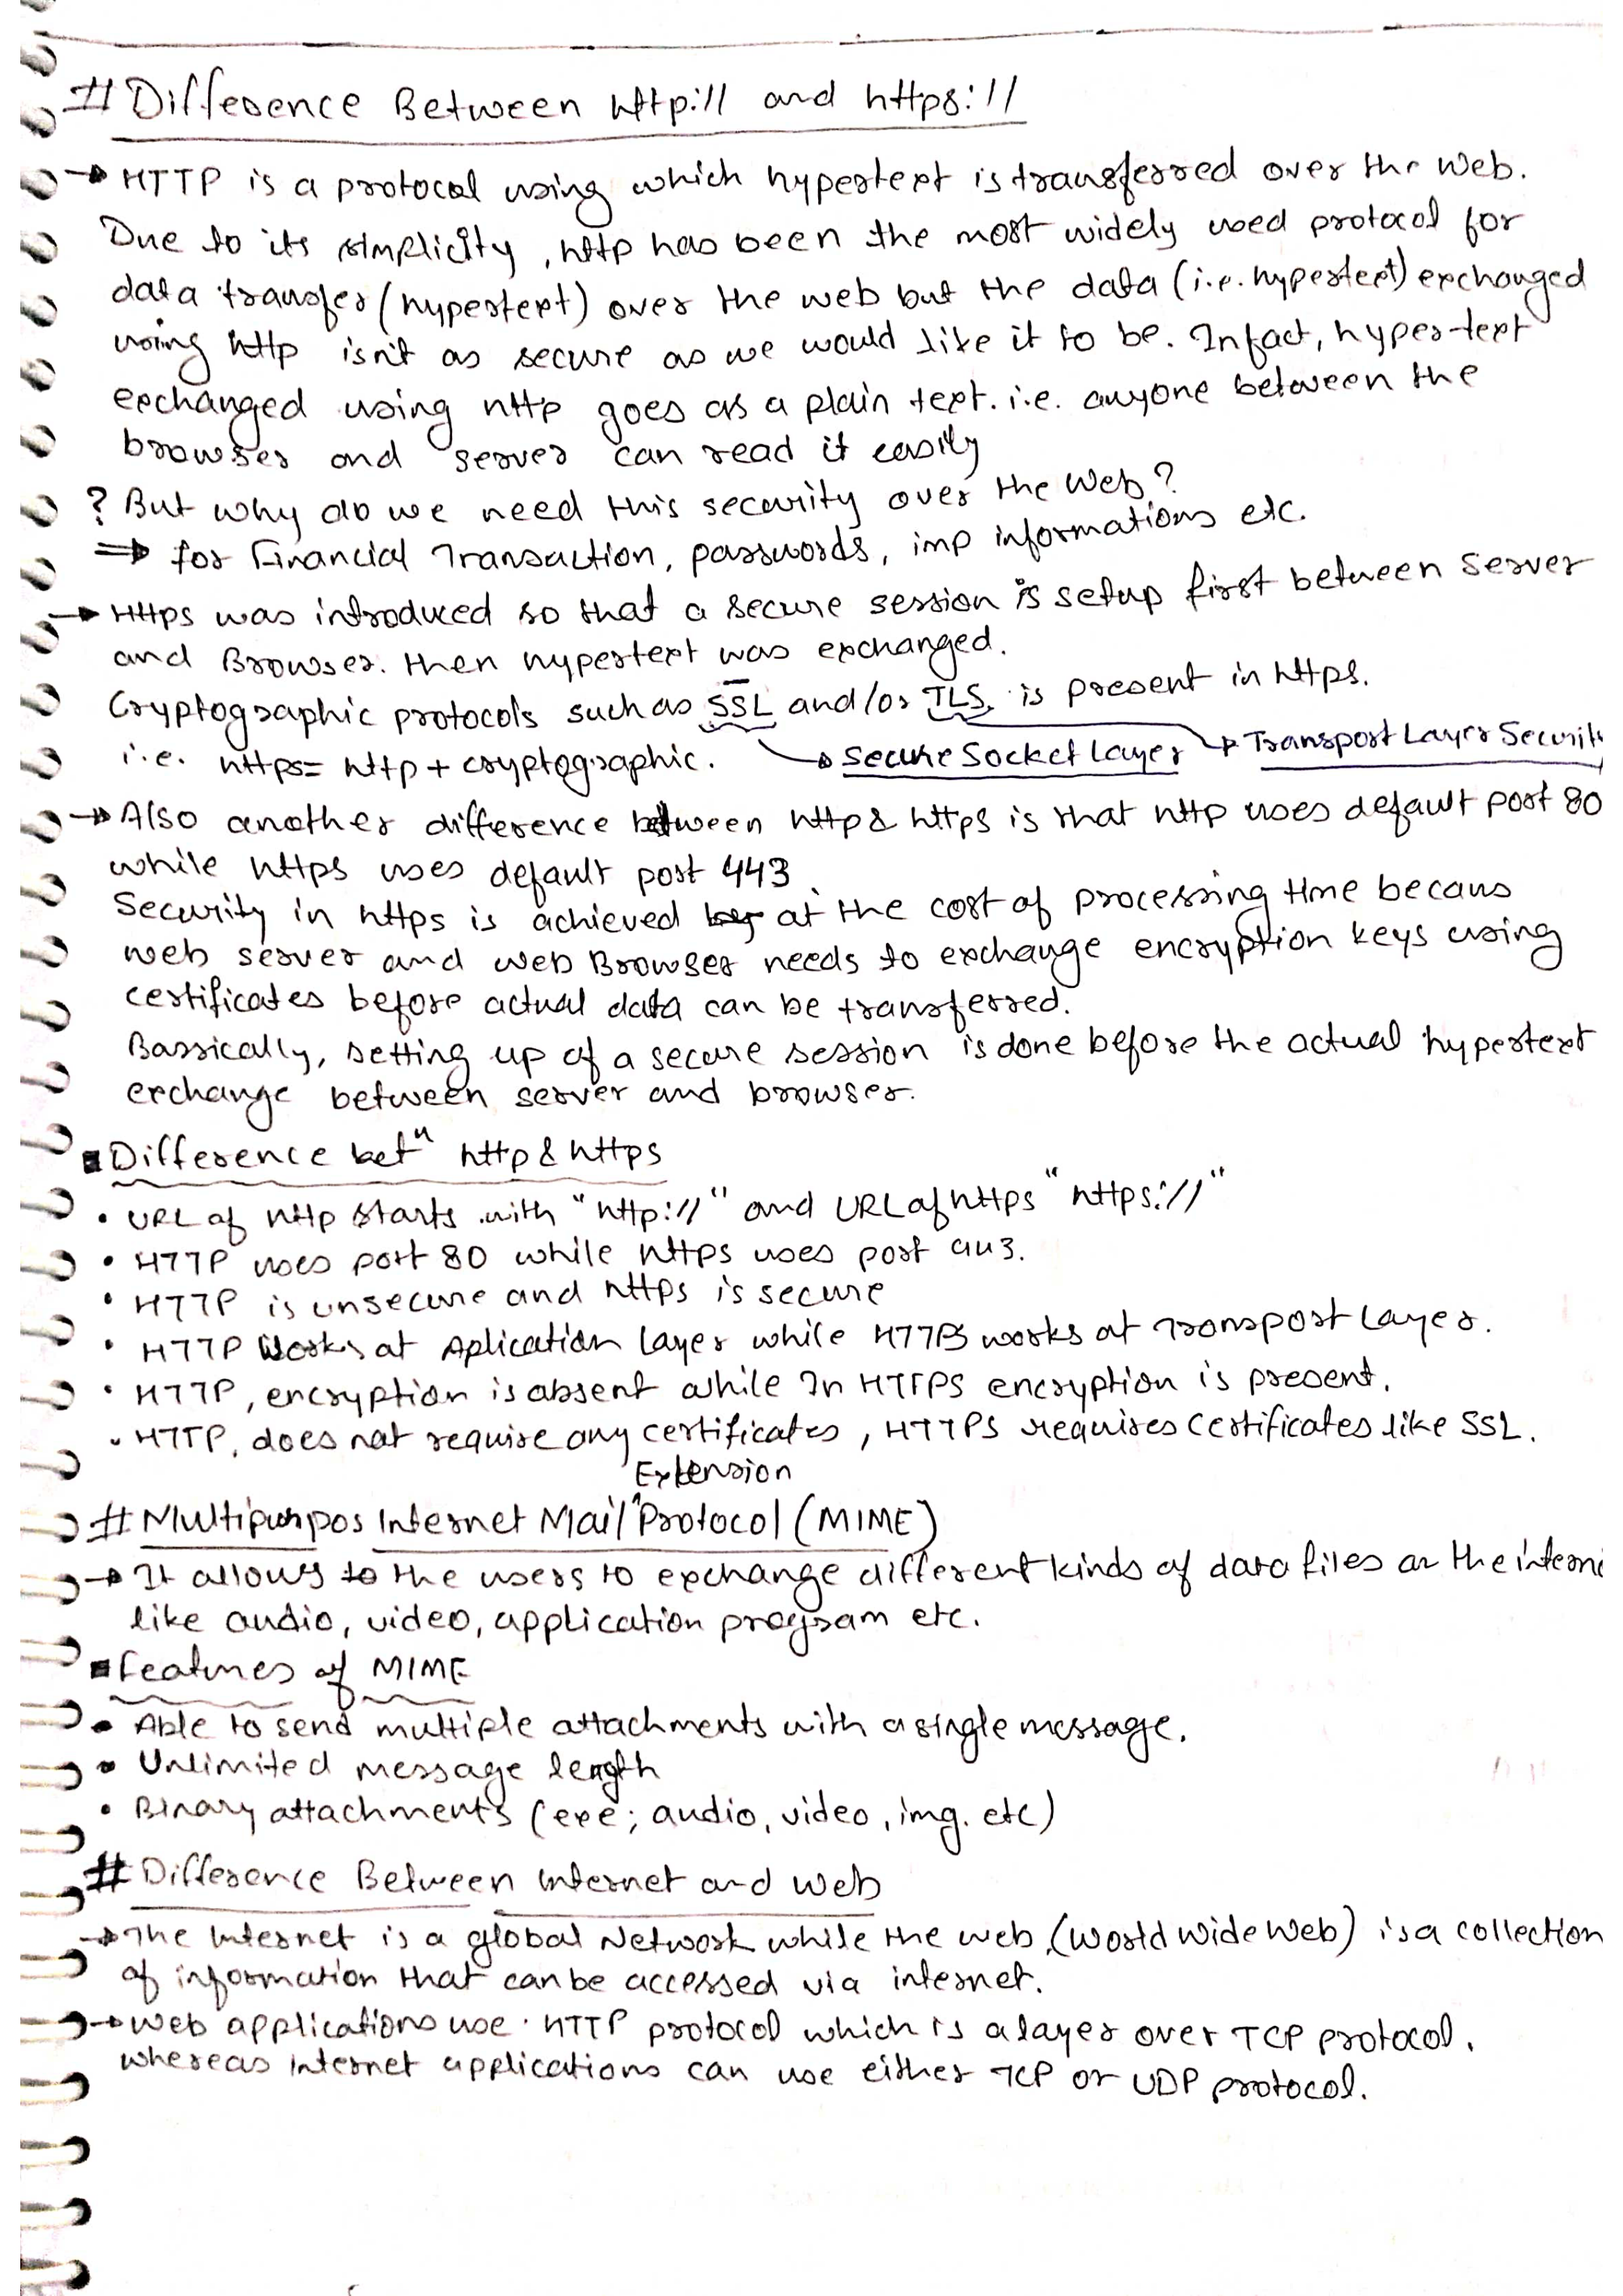 # Difference Between http:// and https://
→ HTTP is a protocol using which hypertext is transferred over the web.
Due to its simplicity, http has been the most widely used protocol for
data transfer (hypertext) over the web but the data (i.e. hypertext) exchanged
using http isn't as secure as we would like it to be. Infact, hyper-text
exchanged using http goes as a plain text. i.e. anyone between the
browser and server can read it easily
? But why do we need this security over the Web?
⇒ for Financial Transaction, passwords, imp informations etc.
→ Https was introduced so that a secure session is setup first between server
and Browser. then hypertext was exchanged.
Cryptographic protocols such as SSL and/or TLS is present in https.
i.e. https = http + cryptographic. → Secure Socket Layer → Transport Layer Securit
→ Also another difference between http & https is that http uses default port 80
while https uses default port 443.
Security in https is achieved at the cost of processing time becaus
web server and web Browser needs to exchange encryption keys using
certificates before actual data can be transferred.
Bassically, setting up of a secure session is done before the actual hypertext
exchange between server and browser.
▪ Difference betⁿ http & https
• URL of http starts with "http://" and URL of https "https://"
• HTTP uses port 80 while https uses port 443.
• HTTP is unsecure and https is secure
• HTTP Works at Aplication layer while HTTPS works at Transport Layer.
• HTTP, encryption is absent while In HTTPS encryption is present.
• HTTP, does not require any certificates, HTTPS requires certificates like SSL.
Extension
# Multipurpos Internet Mail Protocol (MIME)
→ It allows to the users to exchange different kinds of data files on the intern
like audio, video, application program etc.
▪ Features of MIME
• Able to send multiple attachments with a single message.
• Unlimited message length
• Binary attachments (exe; audio, video, img. etc)
# Difference Between Internet and Web
→ The Internet is a global Network while the web (World Wide Web) is a collection
of information that can be accessed via internet.
→ Web applications use HTTP protocol which is a layer over TCP protocol.
whereas Internet applications can use either TCP or UDP protocol.